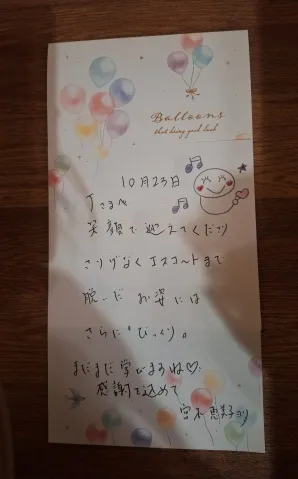 Balloons
that bring good luck
10月23日
Jさまへ
笑顔で迎えてくださり
さりげなくエスコートまで
脱いだお姿には
さらに"びっくり。
まだまだ学びますね♡
感謝を込めて
宮本恵美子より